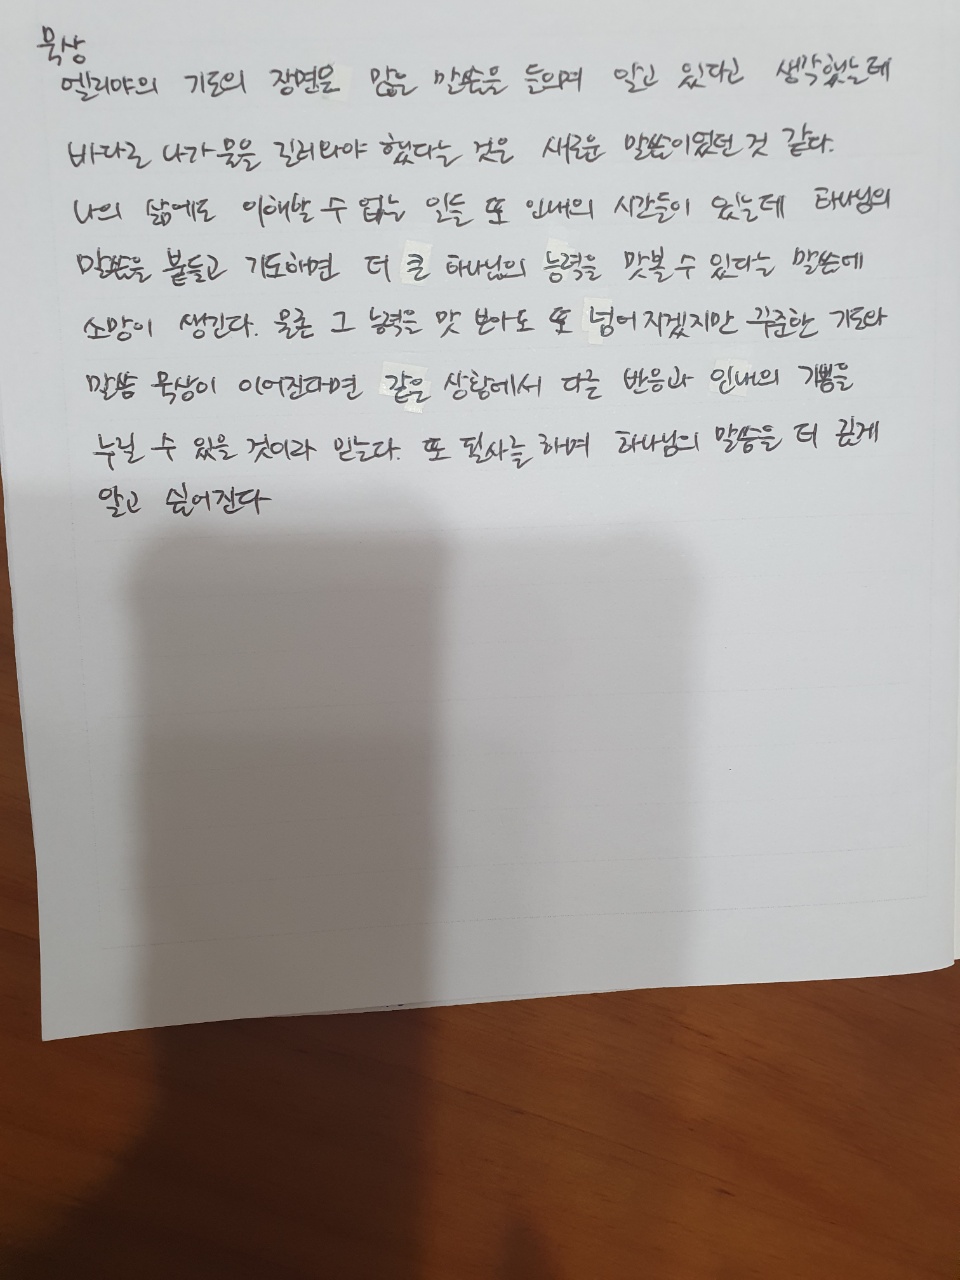 묵상
엘리야의 기도의 장면은 많은 말씀을 들으며 알고 있다고 생각했는데
바다로 나가 물을 길러와야 했다는 것은 새로운 말씀이었던 것 같다.
나의 삶에도 이해할 수 없는 일들 또 인내의 시간들이 있는데 하나님의
말씀을 붙들고 기도하면 더 큰 하나님의 능력을 맛볼 수 있다는 말씀에
소망이 생긴다. 물론 그 능력을 맛 보아도 또 넘어지겠지만 꾸준한 기도와
말씀 묵상이 이어진다면 같은 상황에서 다른 반응과 인내의 기쁨을
누릴 수 있을 것이라 믿는다. 또 필사를 하며 하나님의 말씀을 더 깊게
알고 싶어진다